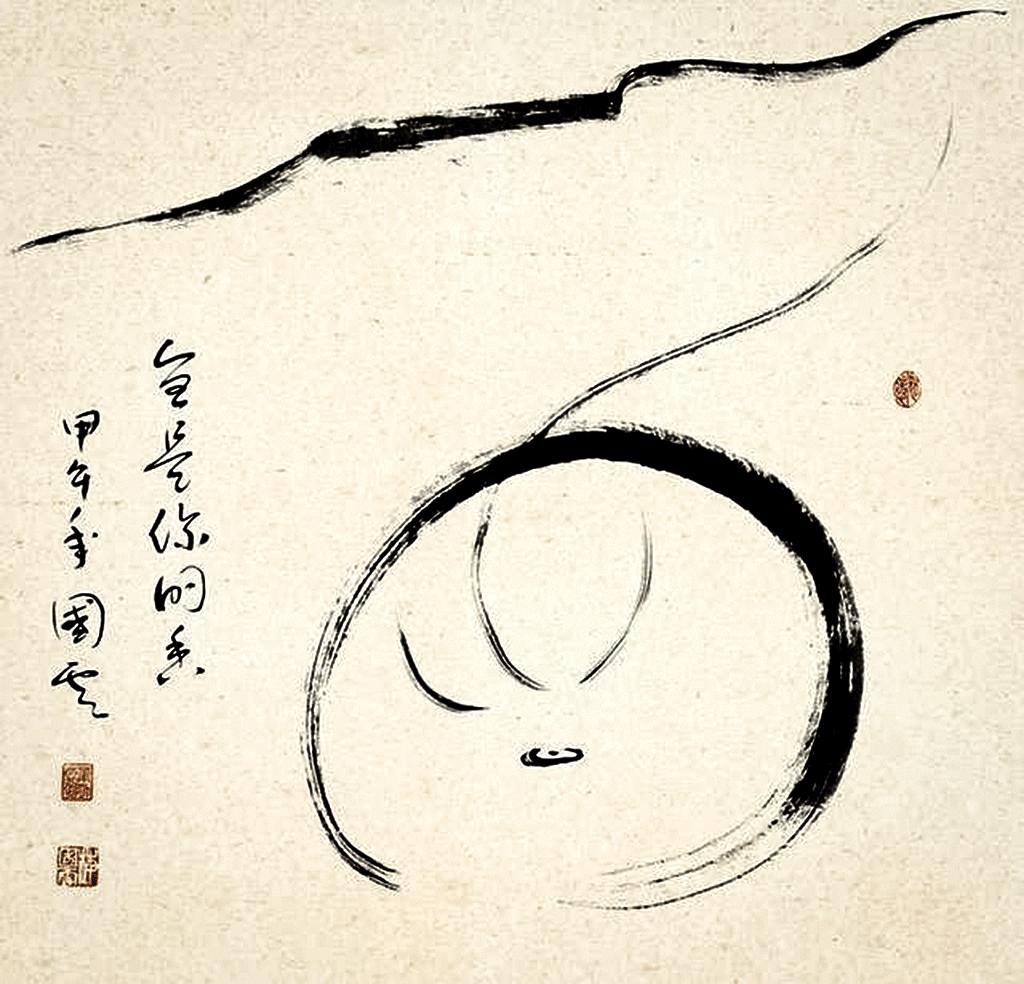 全是你的香
甲午年 國雲